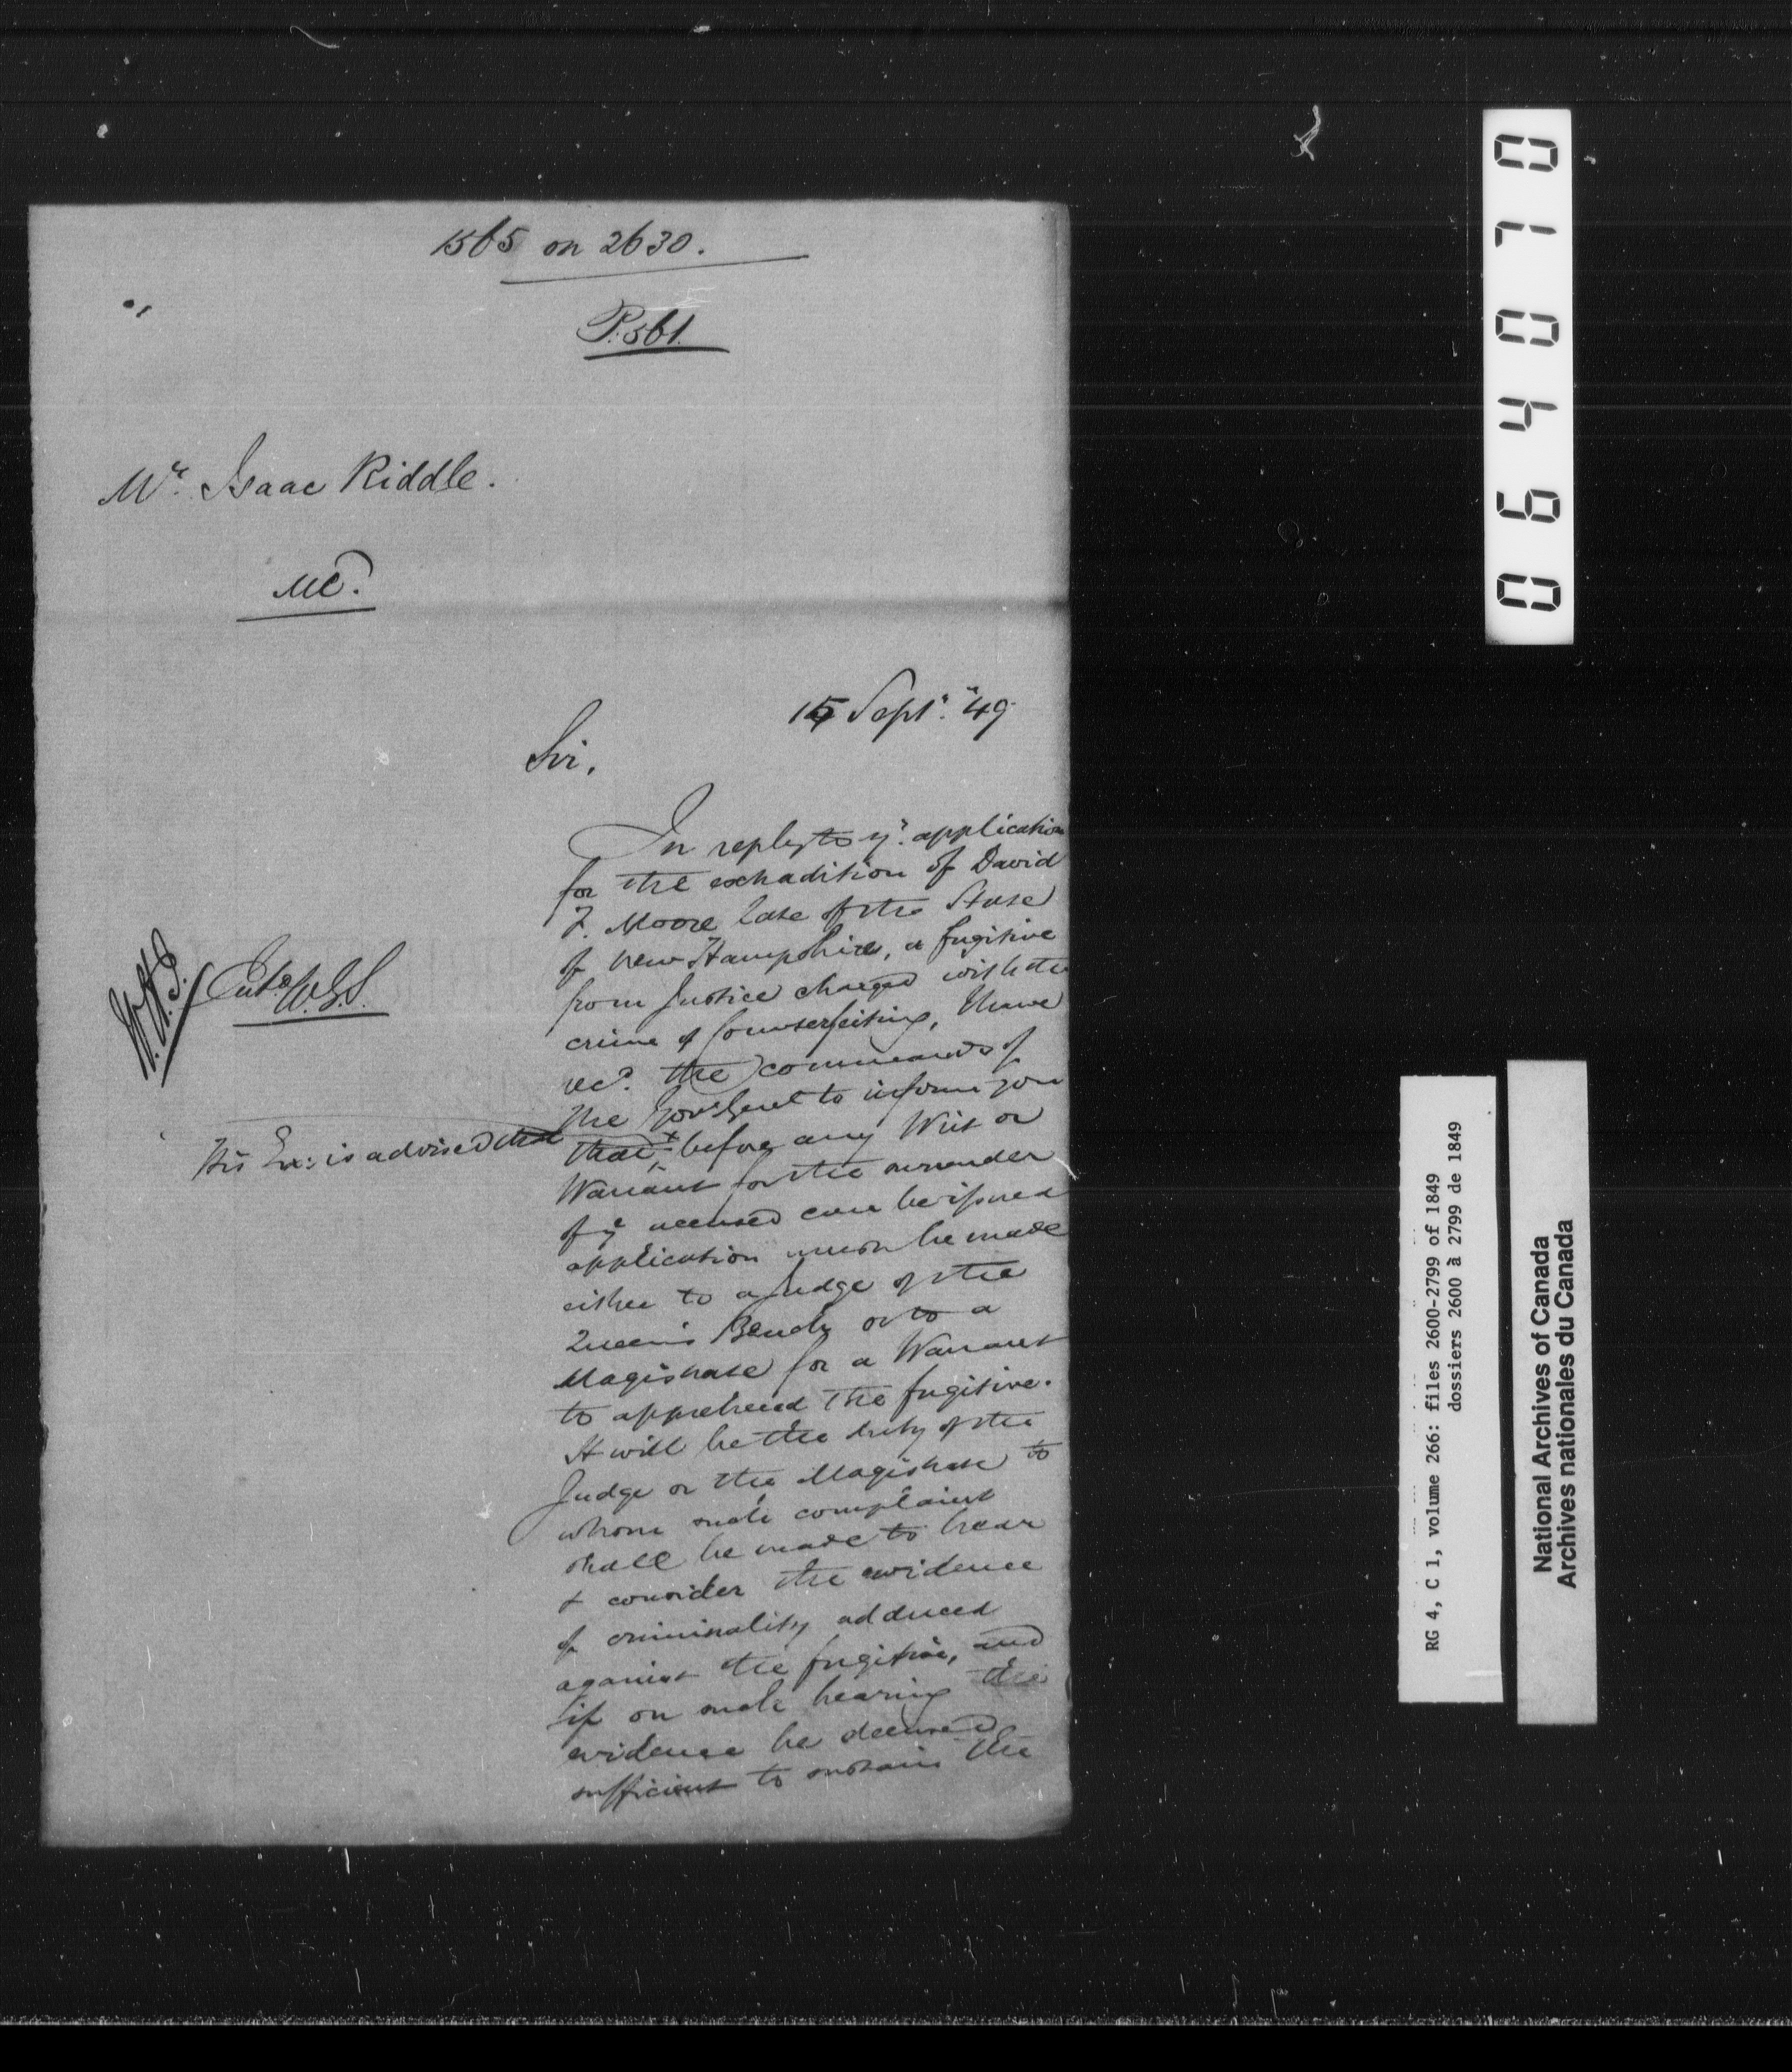 1565 on 2630.
P. 561.
Mr. Isaac Riddle.
Me.
15 Septr. "49
Sir,
In reply to yr. application
for the extradition of David
F. Moore late of the State
of New Hampshire, a fugitive
from Justice charged with the
crime of Counterfeiting, I have
recd. the commands of
the Govr Genl to inform you
that, before any Writ or
His Ex: is advised that
Warrant for the surrender
of ye accused can be issued
application must be made
either to a Judge of the
Queen's Bench or to a
Magistrate for a Warrant
to apprehend the fugitive.
It will be the duty of the
Judge or the Magistrate to
whom such complaint
shall be made to hear
& consider the evidence
of criminality adduced
against the fugitive, and
if on such hearing the
evidence be deemed
sufficient to sustain the
Entd W.G.S.
064070
RG 4, C 1, volume 266: files 2600-2799 of 1849
dossiers 2600 à 2799 de 1849
National Archives of Canada
Archives nationales du Canada